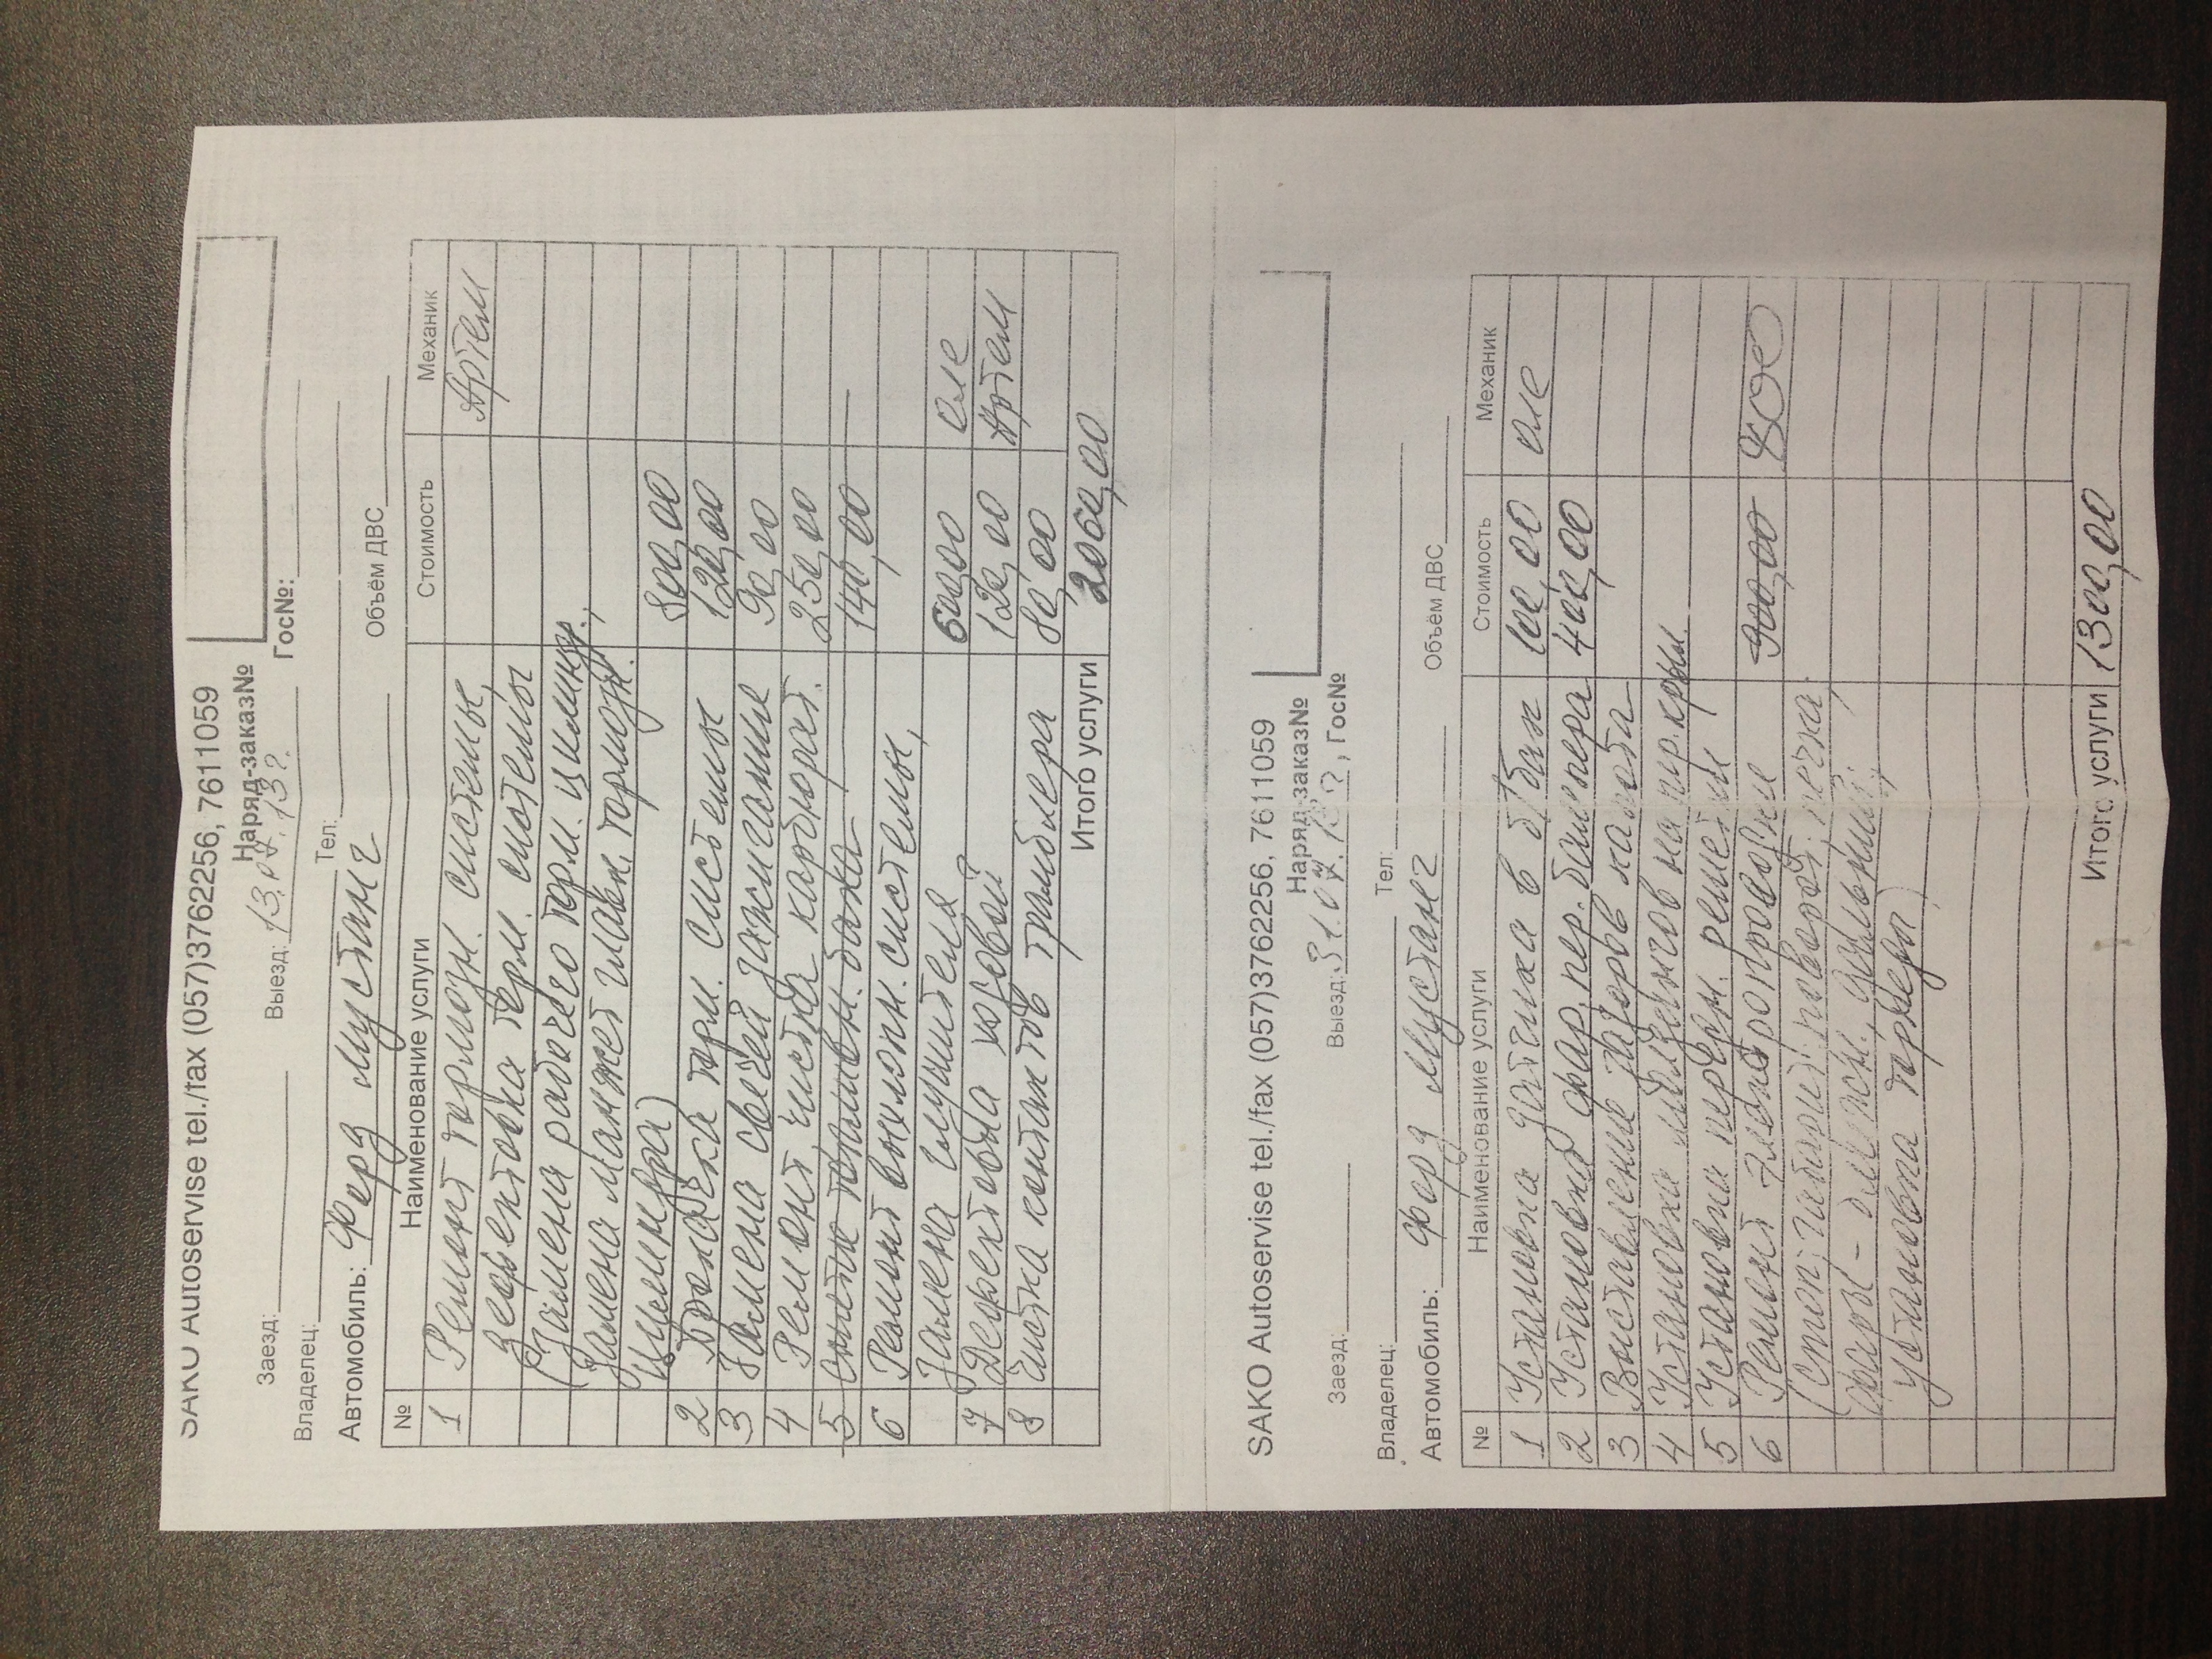 SAKO Autoservise tel./fax (057)3762256, 7611059
Наряд-заказ№
Заезд: Выезд: 13.07.13г. ГосN№:
Владелец: Тел:
Автомобиль: Форд Мустанг Объём ДВС
№ Наименование услуги Стоимость Механик
1 Ремонт тормозн. системы, Артем
дефектовка торм. системы
(Замена рабочего торм. цилиндр.,
Замена манжет главн. тормозн.
цилиндра) 800,00
2 Прокачка торм. системы 120,00
3 Замена свечей зажигания 90,00
4 Ремонт, чистка карбюрат. 250,00
5 Снятие топливн. бака 140,00
6 Ремонт выхлопн. системы,
Замена глушителя 600,00 Оле
7 Дефектовка ходовой 120,00 Артем
8 Чистка контактов трамблера 80,00
Итого услуги 2060,00
SAKO Autoservise tel./fax (057)3762256, 7611059
Наряд-заказ№
Заезд: Выезд: 31.07.13г, ГосN№
Владелец: Тел:
Автомобиль: Форд Мустанг Объём ДВС
№ Наименование услуги Стоимость Механик
1 Установка датчика в б/бак 100,00 Оле
2 Установка фар, пер. бампера 400,00
3 Выставление зазоров капота
4 Установка молдингов на пер. крыл.
5 Установка передн. решетки
6 Ремонт электропроводки 900,00 800
поворот, печка,
фары - ближн. дальний,
установка
Итого услуги 1300,00